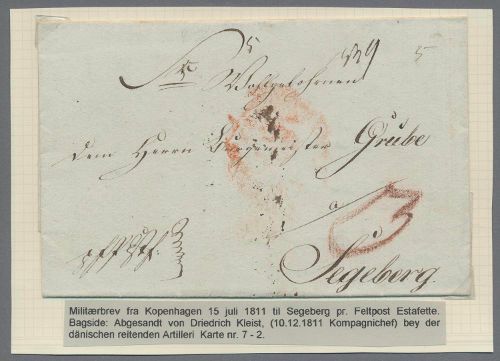 Wohlgebohrnen
dem Herrn Burgemeister Grube
a
Segeberg.
Militærbrev fra Kopenhagen 15 juli 1811 til Segeberg pr. Feltpost Estafette.
Bagside: Abgesandt von Driedrich Kleist, (10.12.1811 Kompagnichef) bey der
dänischen reitenden Artilleri Karte nr. 7 - 2.